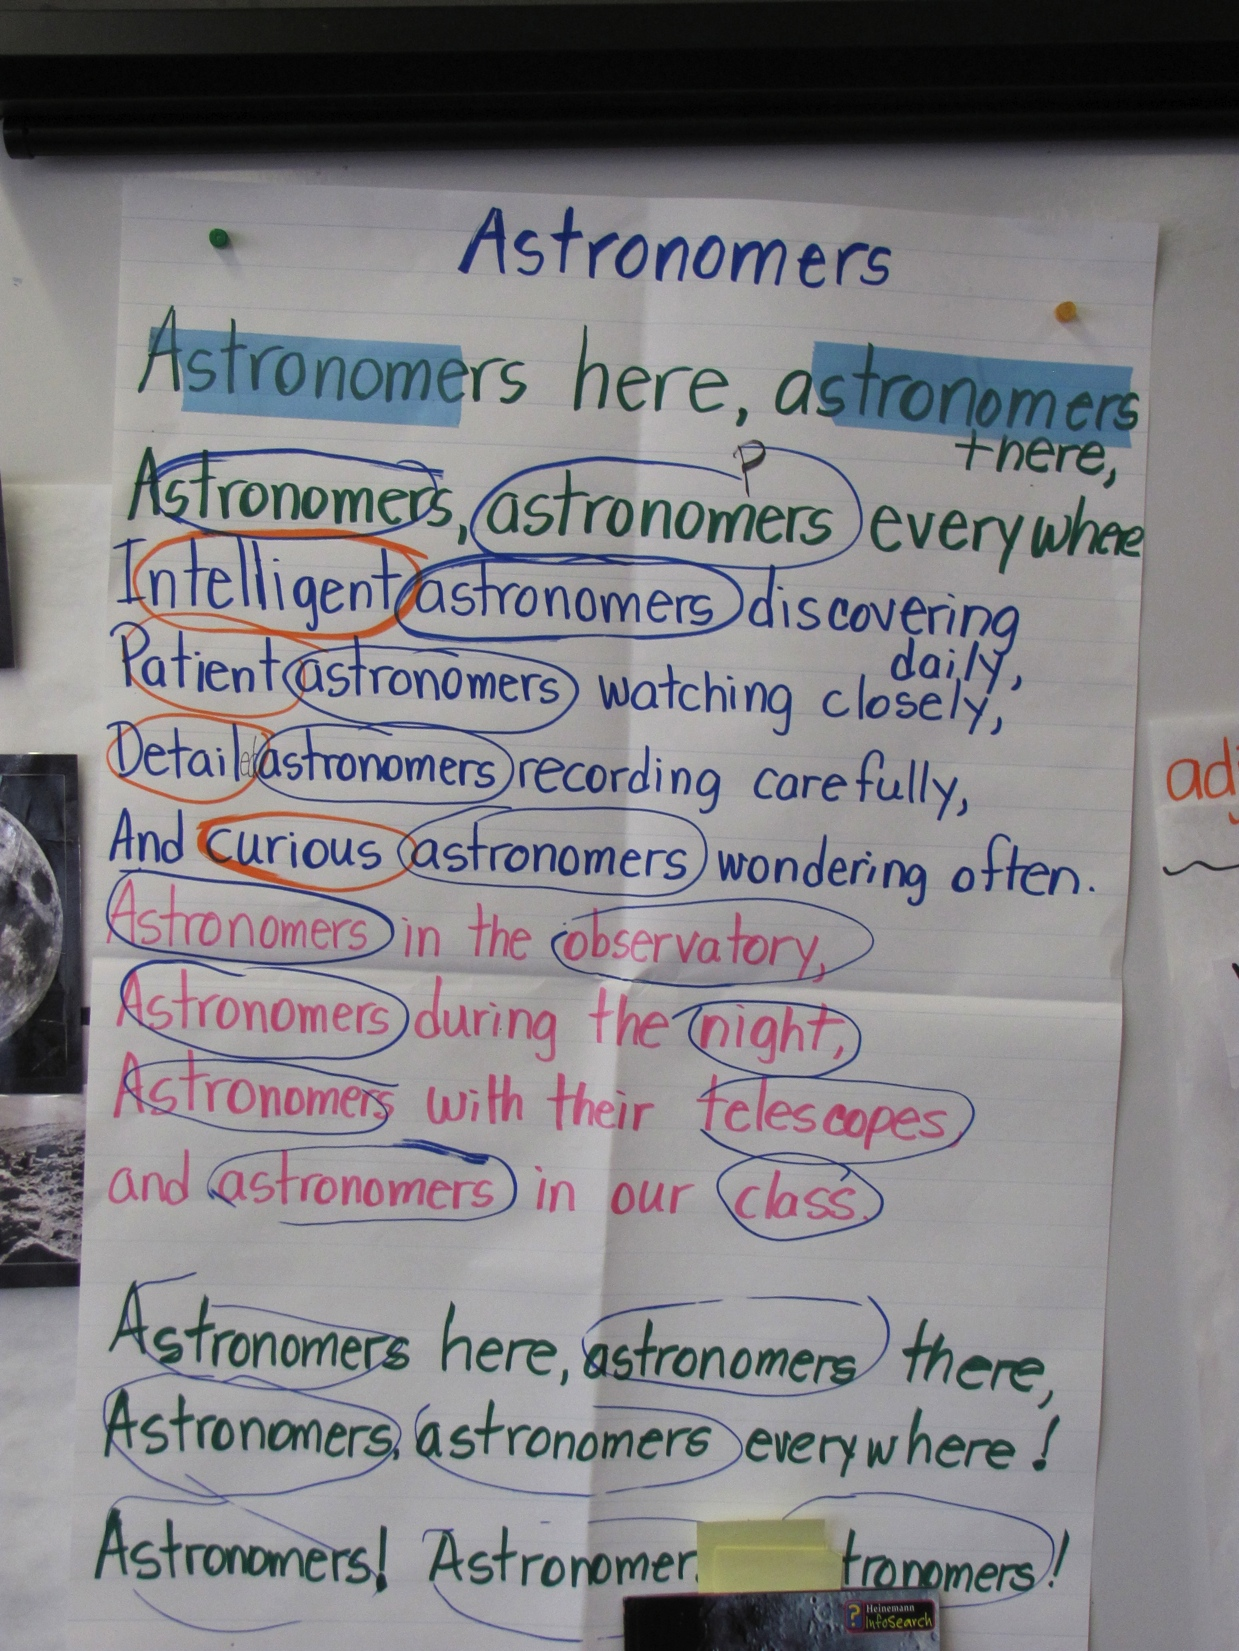 Astronomers
Astronomers here, astronomers
there,
P
Astronomers, astronomers everywhere
Intelligent astronomers discovering
daily,
Patient astronomers watching closely,
Detailed astronomers recording carefully,
And curious astronomers wondering often.
Astronomers in the observatory,
Astronomers during the night,
Astronomers with their telescopes,
and astronomers in our class.
Astronomers here, astronomers there,
Astronomers, astronomers everywhere!
Astronomers! Astronomer tronomers!
adj
? Heinemann
InfoSearch